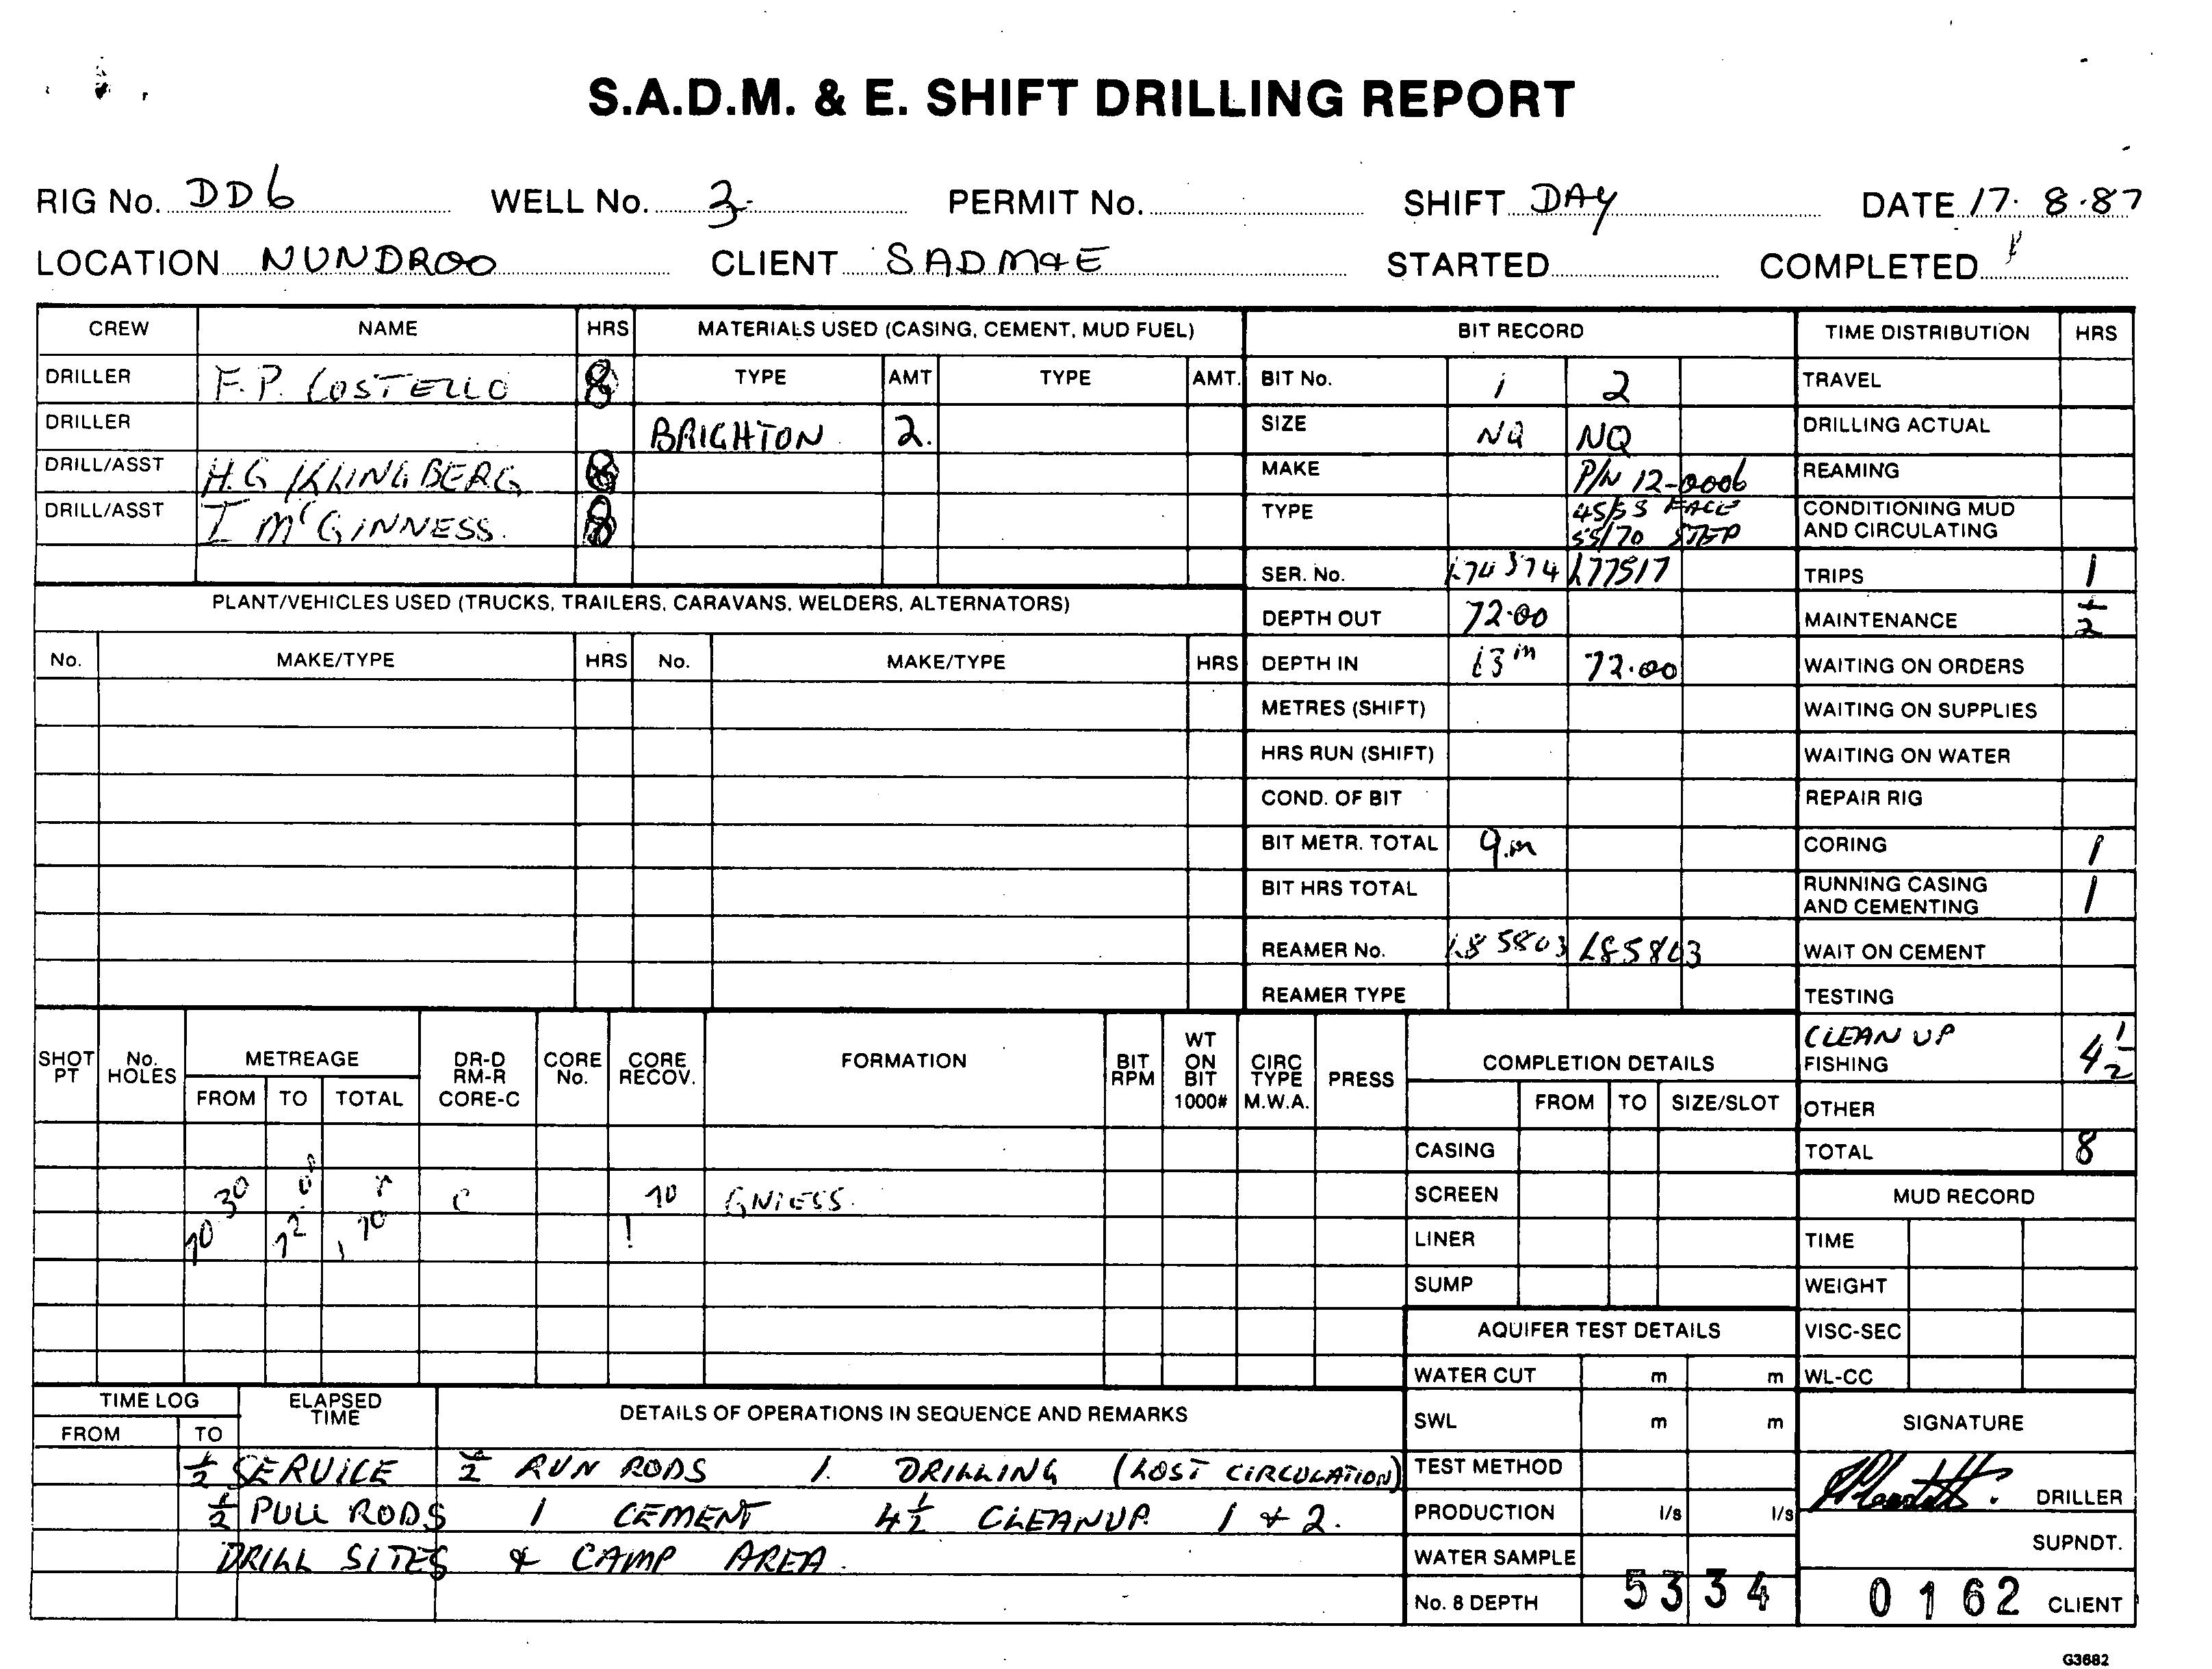 S.A.D.M. & E. SHIFT DRILLING REPORT
RIG No. DD6 WELL No. 3. PERMIT No. SHIFT DAY DATE 17. 8.87
LOCATION NUNDROO CLIENT SADM&E STARTED COMPLETED
CREW NAME HRS MATERIALS USED (CASING, CEMENT, MUD FUEL) BIT RECORD TIME DISTRIBUTION HRS
DRILLER F.P. COSTELLO 8 TYPE AMT TYPE AMT. BIT No. 1 2 TRAVEL
DRILLER BRIGHTON 2. SIZE NQ NQ DRILLING ACTUAL
DRILL/ASST H.G KLINGBERG 8 MAKE P/N 12-0006 REAMING
DRILL/ASST I McGINNESS. 8 TYPE 45/55 FACE CONDITIONING MUD
55/70 STEP AND CIRCULATING
SER. No. L74374 L77517 TRIPS 1
PLANT/VEHICLES USED (TRUCKS, TRAILERS, CARAVANS, WELDERS, ALTERNATORS) DEPTH OUT 72.00 MAINTENANCE 1/2
No. MAKE/TYPE HRS No. MAKE/TYPE HRS DEPTH IN 63m 72.00 WAITING ON ORDERS
METRES (SHIFT) WAITING ON SUPPLIES
HRS RUN (SHIFT) WAITING ON WATER
COND. OF BIT REPAIR RIG
BIT METR. TOTAL 9.m CORING 1
BIT HRS TOTAL RUNNING CASING
AND CEMENTING 1
REAMER No. L85803 L85803 WAIT ON CEMENT
REAMER TYPE TESTING
SHOT PT No. HOLES METREAGE DR-D RM-R CORE-C CORE No. CORE RECOV. FORMATION BIT RPM WT ON BIT 1000# CIRC TYPE M.W.A. PRESS COMPLETION DETAILS CLEAN UP
FISHING 4 1/2
FROM TO TOTAL FROM TO SIZE/SLOT OTHER
CASING TOTAL 8
70 30 72 00 1 70 C 1 70 GNIESS. SCREEN MUD RECORD
LINER TIME
SUMP WEIGHT
AQUIFER TEST DETAILS VISC-SEC
WATER CUT m m WL-CC
TIME LOG ELAPSED TIME DETAILS OF OPERATIONS IN SEQUENCE AND REMARKS SWL m m SIGNATURE
FROM TO
1/2 SERVICE 1/2 RUN RODS 1. DRILLING (LOST CIRCULATION) TEST METHOD
1/2 PULL RODS 1 CEMENT 4 1/2 CLEANUP 1 & 2. PRODUCTION l/s l/s DRILLER
DRILL SITES & CAMP AREA. WATER SAMPLE SUPNDT.
No. 8 DEPTH 5334 0162 CLIENT
G3682